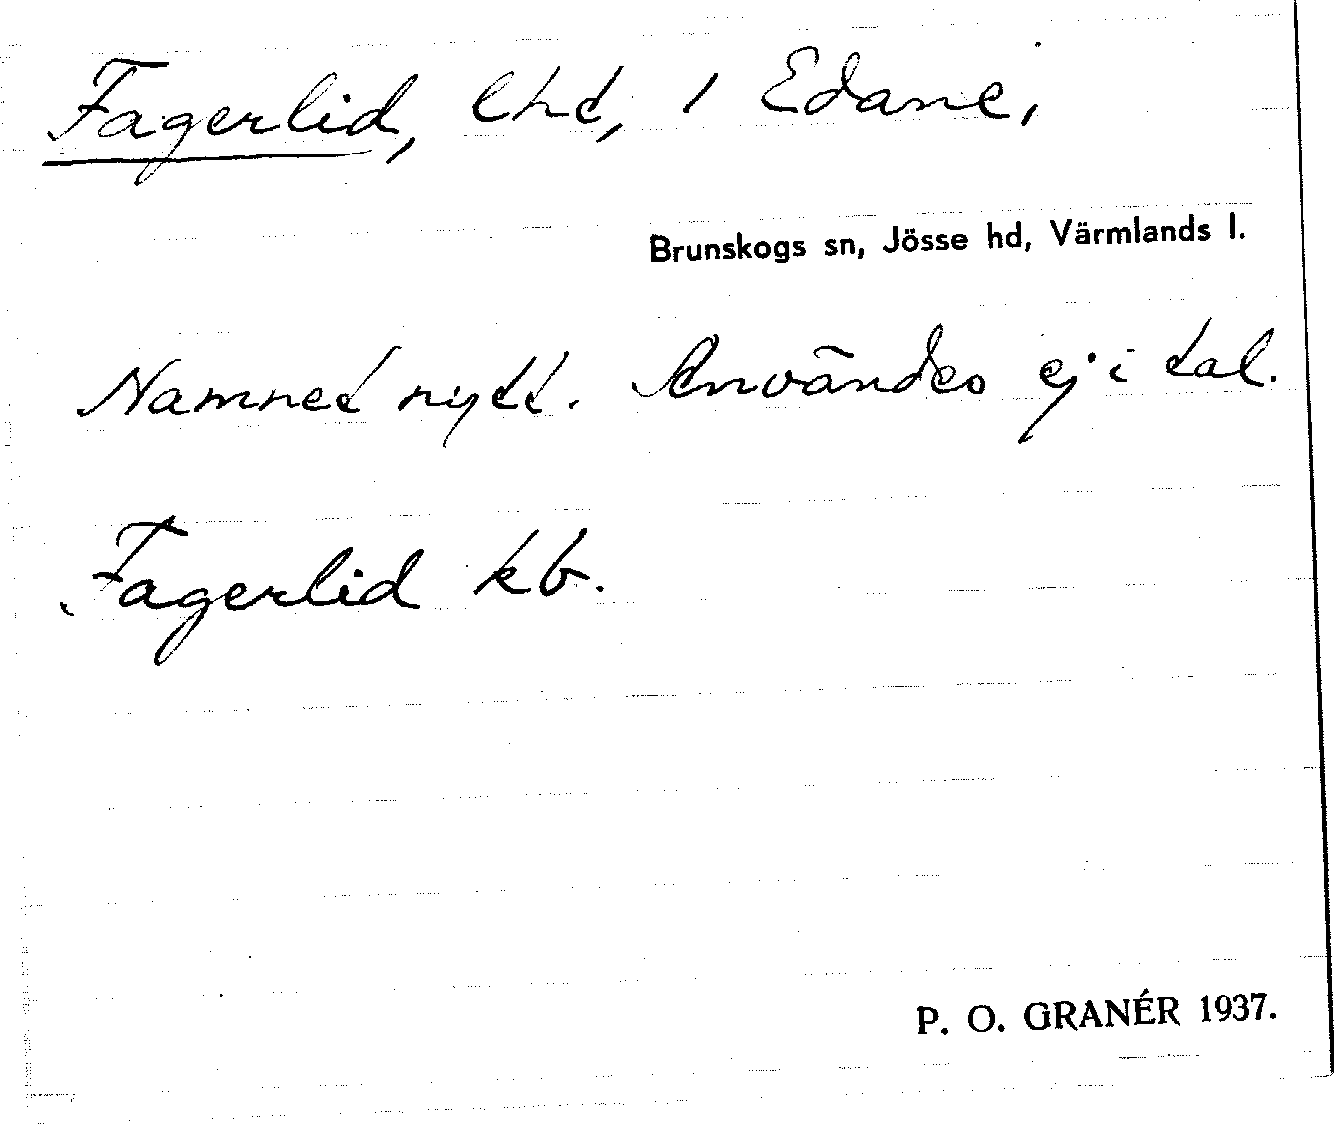 Fagerlid, lht, i Edane,
Brunskogs sn, Jösse hd, Värmlands l.
Namnet nytt. Användes ej i tal.
Fagerlid kb.
P. O. GRANÉR 1937.